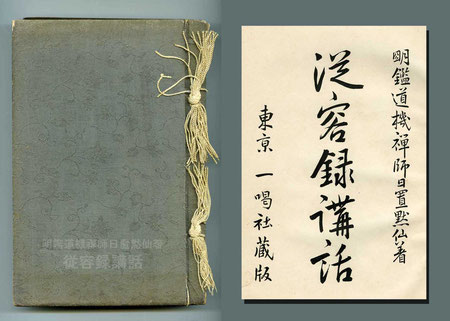 明鑑道機禪師日置默仙著
從容録講話
明鑑道機禪師日置默仙著
従容録講話
東亰 一喝社蔵版